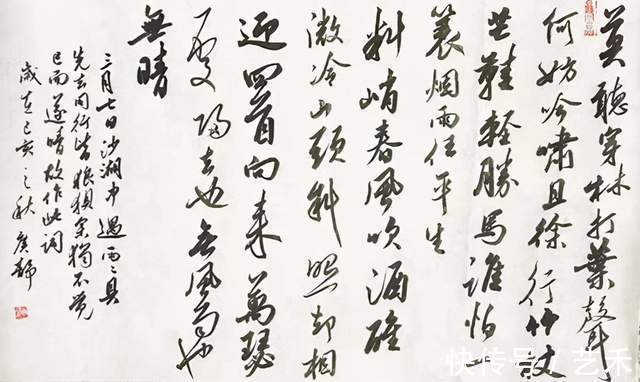 莫聽穿林打葉聲
何妨吟嘯且徐行竹杖
芒鞋輕勝馬誰怕一
蓑烟雨任平生
料峭春風吹酒醒
微冷山頭斜照却相
迎回首向来蕭瑟
處歸去也無風雨也
無晴
三月七日沙湖中遇雨雨具
先去同行皆狼狽余獨不覺
已而遂晴故作此詞
歲在己亥之秋
快传号/艺禾